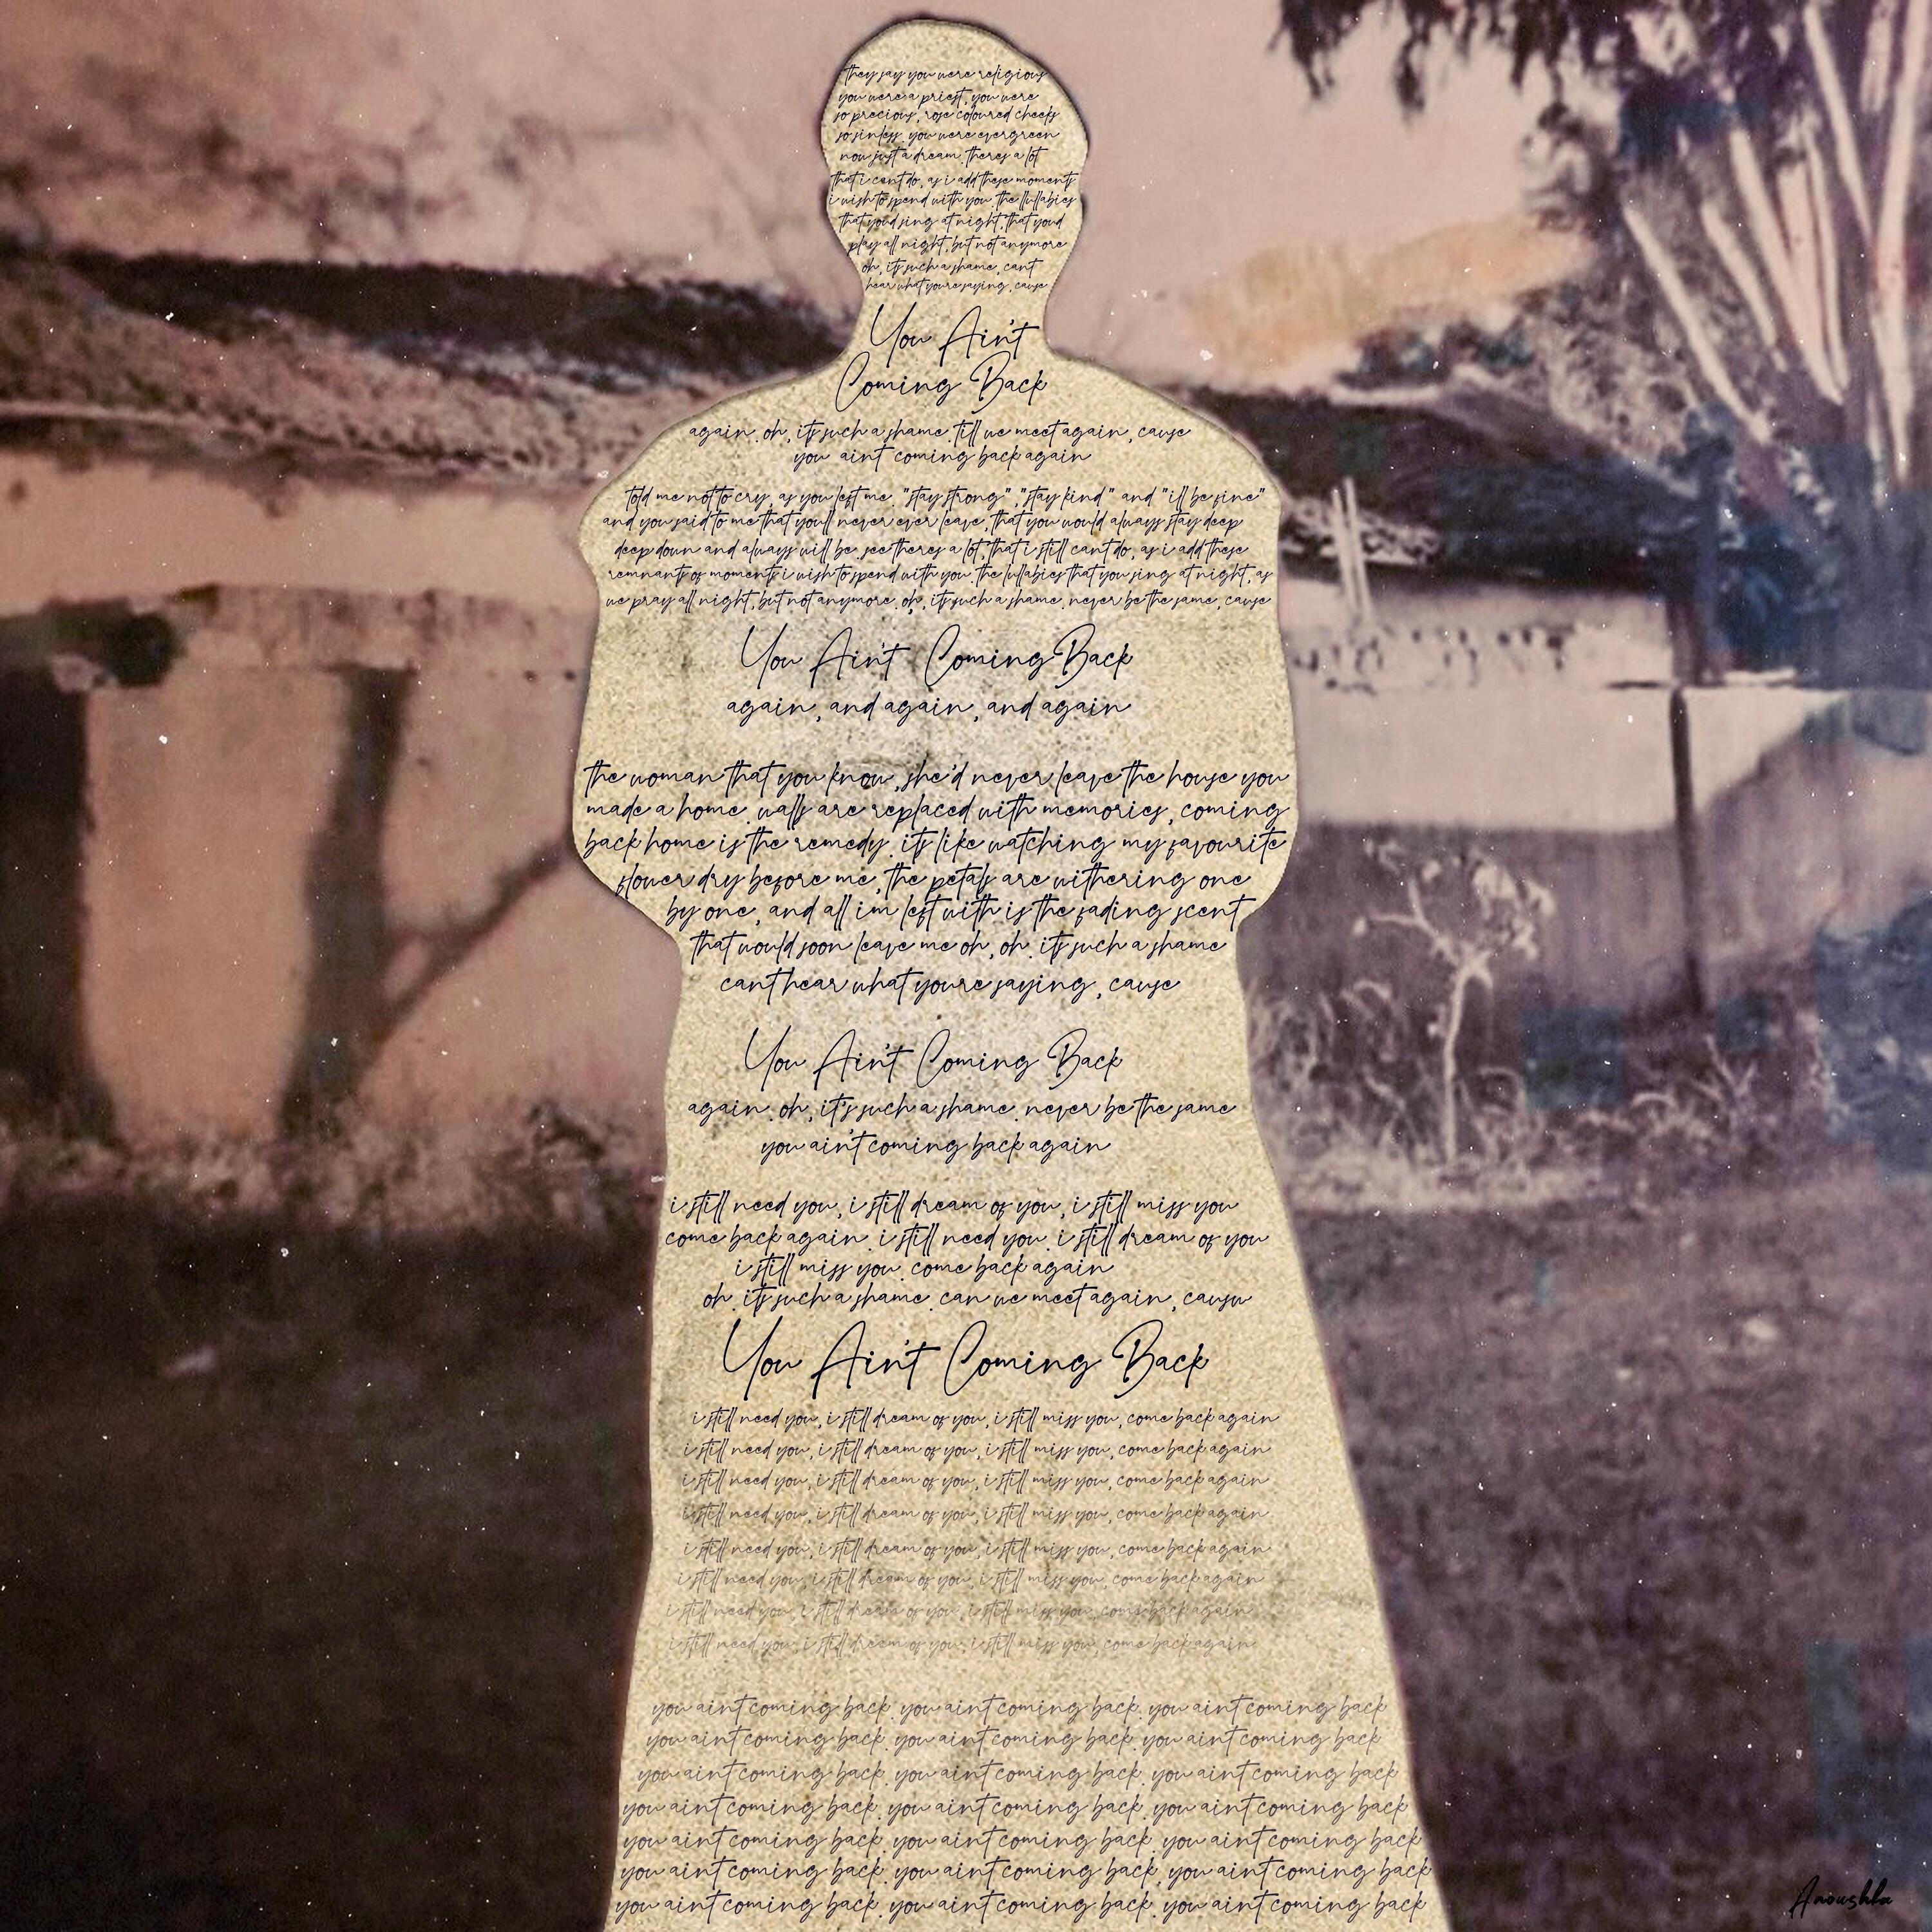 they say you were religious
you were a priest, you were
so precious, rose coloured cheeks
so sinless, you were evergreen
now just a dream. theres a lot
that i cant do, as i add these moments
i wish to spend with you. the lullabies
that youd sing at night, that youd
play all night, but not anymore
oh, its such a shame, cant
hear what youre saying, cause
You Ain't
Coming Back
again. oh, its such a shame. till we meet again, cause
you aint coming back again
told me not to cry, as you left me. "stay strong", "stay kind" and "ill be fine"
and you said to me that youll never ever leave, that you would always stay deep
deep down and always will be. see theres a lot, that i still cant do, as i add these
remnants of moments i wish to spend with you. the lullabies that you sing at night, as
we pray all night, but not anymore. oh, its such a shame. never be the same, cause
You Ain't Coming Back
again, and again, and again
the woman that you know, she'd never leave the house you
made a home. walls are replaced with memories, coming
back home is the remedy. its like watching my favourite
flower dry before me, the petals are withering one
by one, and all im left with is the fading scent
that would soon leave me oh, oh. its such a shame
cant hear what youre saying, cause
You Ain't Coming Back
again. oh, it's such a shame. never be the same
you ain't coming back again
i still need you, i still dream of you, i still miss you
come back again. i still need you. i still dream of you
i still miss you. come back again
oh. its such a shame. can we meet again, causu
You Ain't Coming Back
i still need you, i still dream of you, i still miss you, come back again
i still need you, i still dream of you, i still miss you, come back again
i still need you, i still dream of you, i still miss you, come back again
i still need you, i still dream of you, i still miss you, come back again
i still need you, i still dream of you, i still miss you, come back again
i still need you, i still dream of you, i still miss you, come back again
i still need you, i still dream of you, i still miss you, come back again
i still need you, i still dream of you, i still miss you, come back again
you aint coming back. you aint coming back. you aint coming back
you aint coming back. you aint coming back. you aint coming back
you aint coming back. you aint coming back. you aint coming back
you aint coming back. you aint coming back. you aint coming back
you aint coming back. you aint coming back. you aint coming back
you aint coming back. you aint coming back. you aint coming back
you aint coming back. you aint coming back. you aint coming back
Anoushka